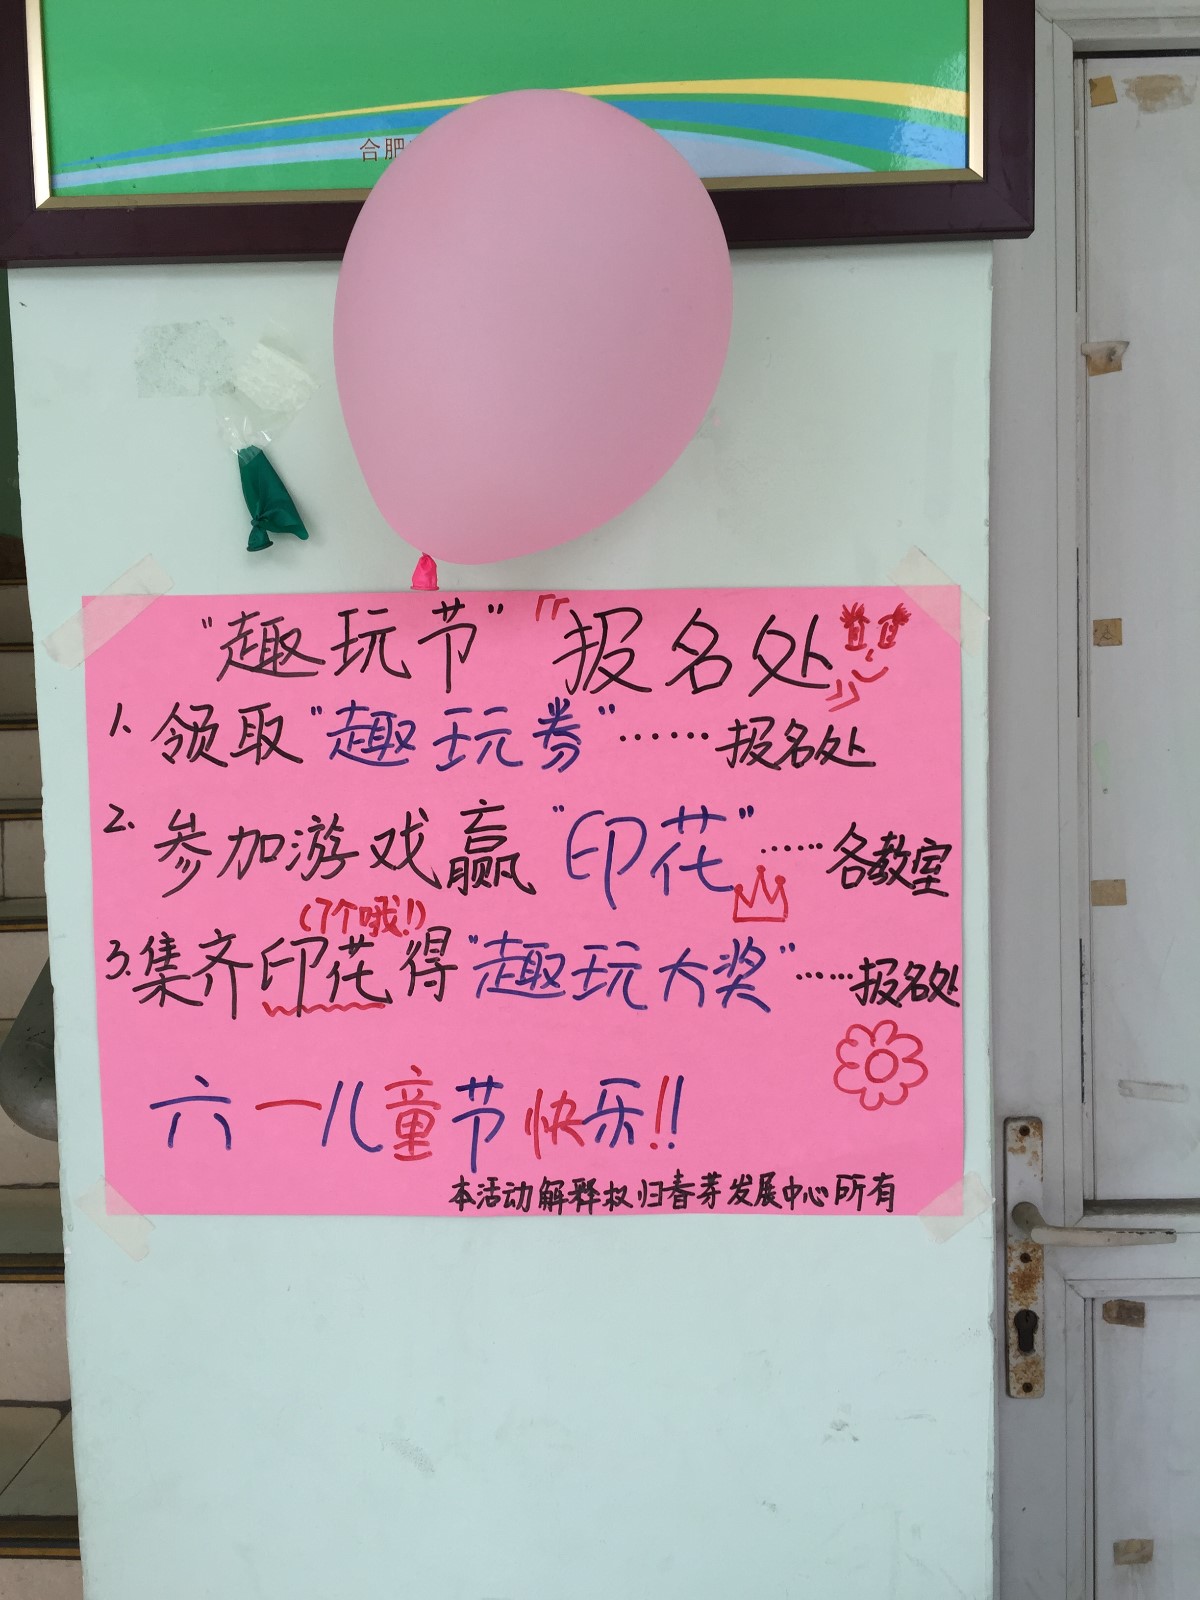 合肥
"趣玩节" "报名处"
1. 领取"趣玩券"……报名处
2. 参加游戏赢"印花"……各教室
(7个哦!)
3. 集齐印花得"趣玩大奖"……报名处
六一儿童节快乐!!
本活动解释权归春芽发展中心所有